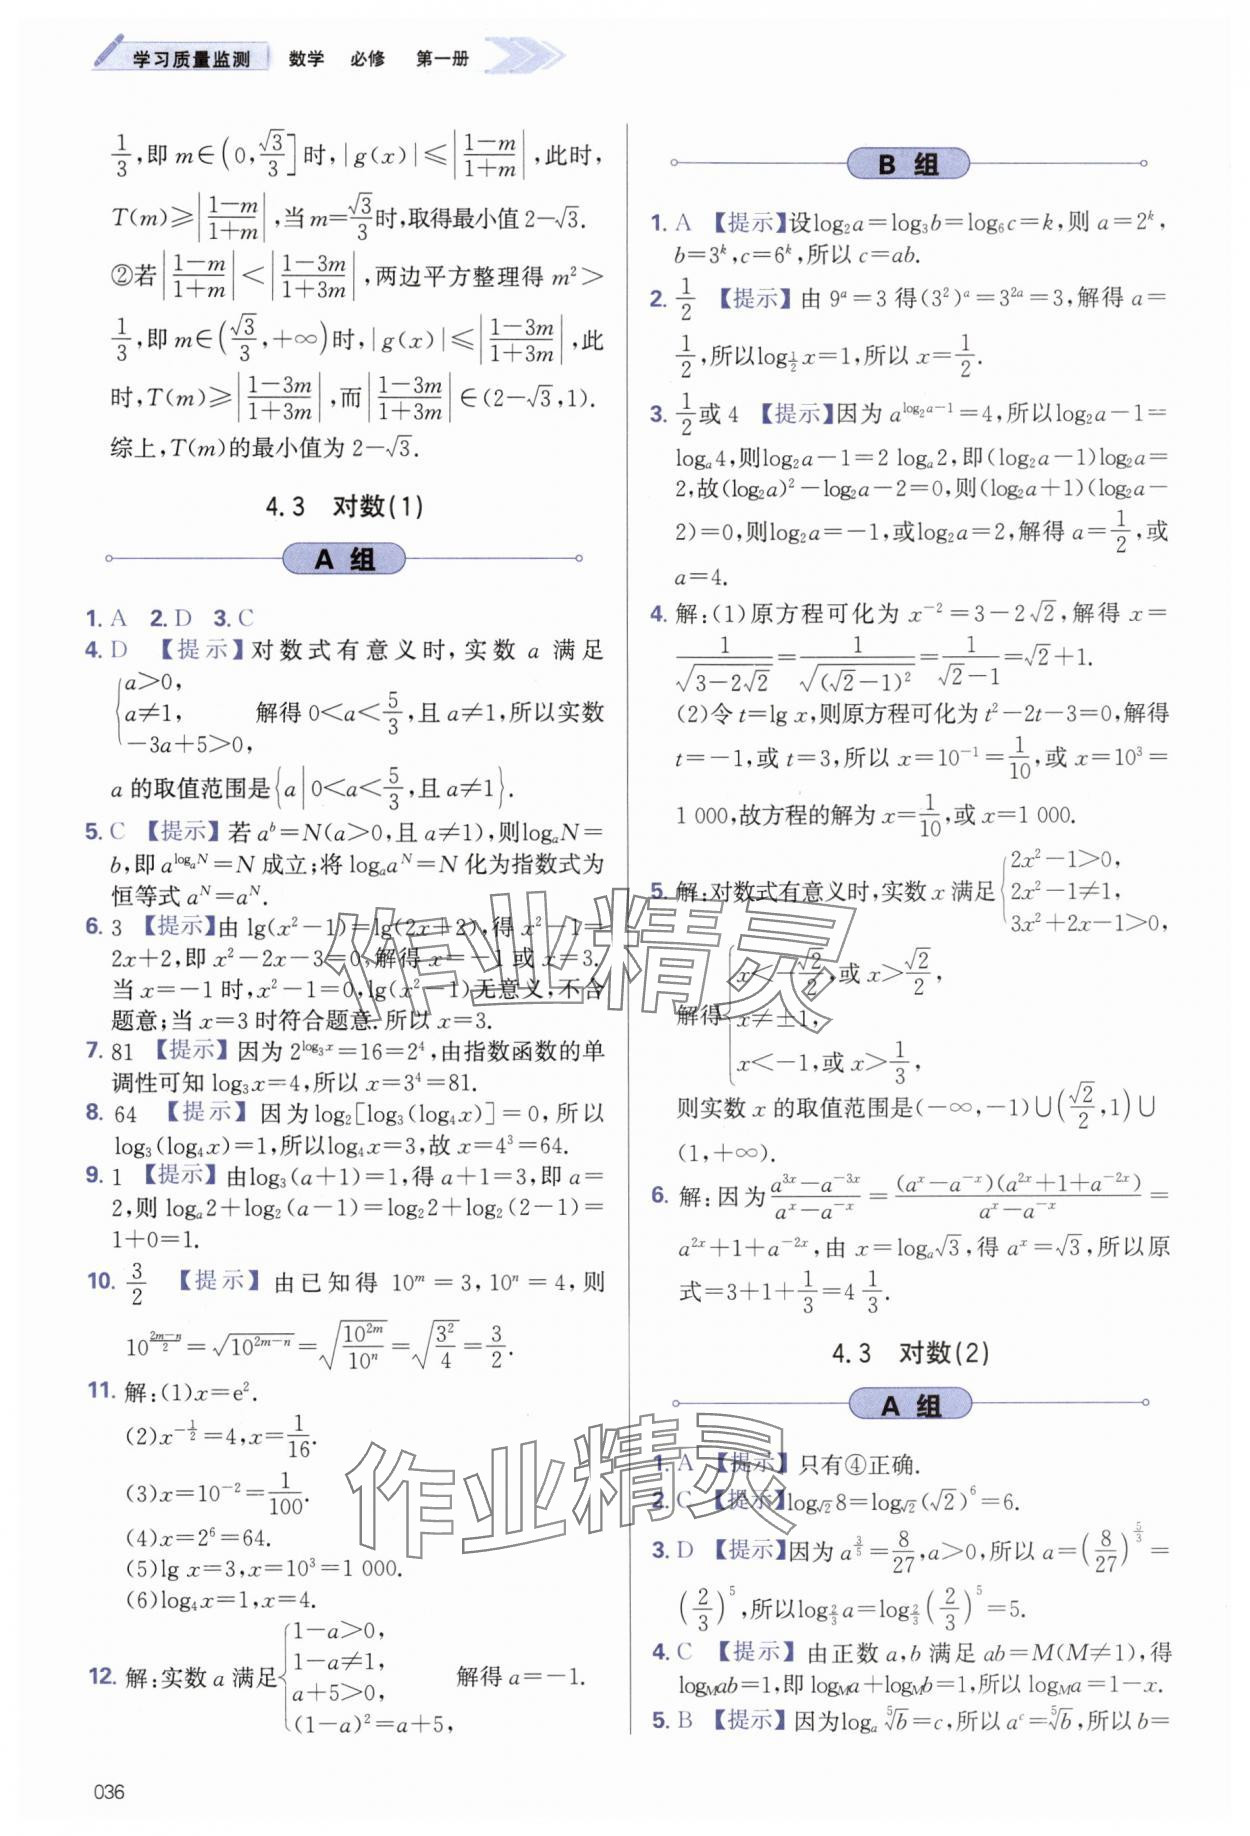 学习质量监测 数学 必修 第一册
1/3,即 m∈(0,√3/3]时,|g(x)|≤|(1-m)/(1+m)|,此时,
T(m)≥|(1-m)/(1+m)|,当 m=√3/3时,取得最小值 2-√3.
②若|(1-m)/(1+m)|<|(1-3m)/(1+3m)|,两边平方整理得 m²>
1/3,即 m∈(√3/3,+∞)时,|g(x)|≤|(1-3m)/(1+3m)|,此
时,T(m)≥|(1-3m)/(1+3m)|,而|(1-3m)/(1+3m)|∈(2-√3,1).
综上,T(m)的最小值为 2-√3.
4.3 对数(1)
A 组
1. A 2. D 3. C
4. D 【提示】对数式有意义时,实数 a 满足
{a>0,
a≠1, 解得 0<a<5/3,且 a≠1,所以实数
-3a+5>0,
a 的取值范围是{a|0<a<5/3,且 a≠1}.
5. C 【提示】若 a^b=N(a>0,且 a≠1),则log_a N=
b,即 a^(log_a N)=N 成立;将 log_a a^N=N 化为指数式为
恒等式 a^N=a^N.
6. 3 【提示】由 lg(x²-1)=lg(2x+2),得 x²-1=
2x+2,即 x²-2x-3=0,解得 x=-1 或 x=3.
当 x=-1 时,x²-1=0,lg(x²-1)无意义,不合
题意;当 x=3 时符合题意.所以 x=3.
7. 81 【提示】因为 2^(log₃x)=16=2⁴,由指数函数的单
调性可知 log₃x=4,所以 x=3⁴=81.
8. 64 【提示】因为log₂[log₃(log₄x)]=0,所以
log₃(log₄x)=1,所以log₄x=3,故 x=4³=64.
9. 1 【提示】由log₃(a+1)=1,得 a+1=3,即 a=
2,则 log_a 2+log₂(a-1)=log₂2+log₂(2-1)=
1+0=1.
10. 3/2 【提示】由已知得 10^m=3,10^n=4,则
10^((2m-n)/2)=√(10^(2m-n))=√(10^(2m)/10^n)=√(3²/4)=3/2.
11. 解:(1)x=e².
(2)x^(-1/2)=4,x=1/16.
(3)x=10⁻²=1/100.
(4)x=2⁶=64.
(5)lg x=3,x=10³=1 000.
(6)log₄x=1,x=4.
12. 解:实数 a 满足{1-a>0,
1-a≠1, 解得 a=-1.
a+5>0,
(1-a)²=a+5,
036
B 组
1. A 【提示】设log₂a=log₃b=log₆c=k,则 a=2^k,
b=3^k,c=6^k,所以 c=ab.
2. 1/2 【提示】由 9^a=3 得(3²)^a=3^(2a)=3,解得 a=
1/2,所以log_(1/2) x=1,所以 x=1/2.
3. 1/2或 4 【提示】因为 a^(log₂a-1)=4,所以log₂a-1=
log_a 4,则log₂a-1=2 log_a 2,即(log₂a-1)log₂a=
2,故(log₂a)²-log₂a-2=0,则(log₂a+1)(log₂a-
2)=0,则log₂a=-1,或log₂a=2,解得 a=1/2,或
a=4.
4. 解:(1)原方程可化为 x⁻²=3-2√2,解得 x=
1/√(3-2√2)=1/√((√2-1)²)=1/(√2-1)=√2+1.
(2)令 t=lg x,则原方程可化为 t²-2t-3=0,解得
t=-1,或 t=3,所以 x=10⁻¹=1/10,或 x=10³=
1 000,故方程的解为 x=1/10,或 x=1 000.
5. 解:对数式有意义时,实数 x 满足{2x²-1>0,
2x²-1≠1,
3x²+2x-1>0,
解得{x<-√2/2,或 x>√2/2,
x≠±1,
x<-1,或 x>1/3,
则实数 x 的取值范围是(-∞,-1)∪(√2/2,1)∪
(1,+∞).
6. 解:因为(a^(3x)-a^(-3x))/(a^x-a^(-x))=(a^x-a^(-x))(a^(2x)+1+a^(-2x))/(a^x-a^(-x))=
a^(2x)+1+a^(-2x),由 x=log_a √3,得 a^x=√3,所以原
式=3+1+1/3=4 1/3.
4.3 对数(2)
A 组
1. A 【提示】只有④正确.
2. C 【提示】log_√2 8=log_√2 (√2)⁶=6.
3. D 【提示】因为 a^(3/5)=8/27,a>0,所以 a=(8/27)^(5/3)=
(2/3)⁵,所以log_(2/3) a=log_(2/3) (2/3)⁵=5.
4. C 【提示】由正数 a,b 满足 ab=M(M≠1),得
log_M ab=1,即 log_M a+log_M b=1,所以 log_M a=1-x.
5. B 【提示】因为log_a ⁵√b=c,所以 a^c=⁵√b,所以 b=
作业精灵
作业精灵